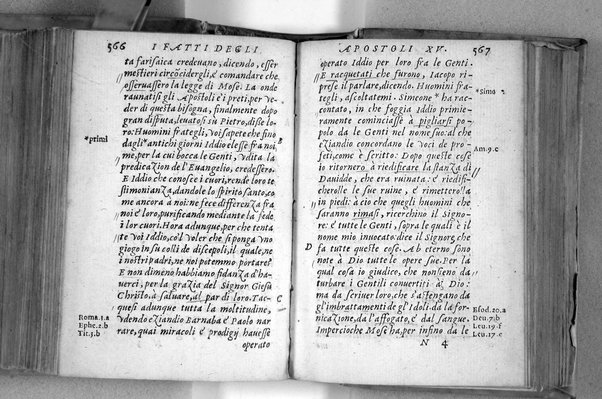 566 I FATTI DEGLI
ta farisaica credeuano, dicendo, esser
mestieri circōcidergli, e comandare che
osseruassero la legge di Mose. La onde
raunatisi gli Apostoli e i preti, per ve-
der di questa bisogna, finalmente dopo
gran disputa, leuatosi su Pietro, disse lo-
ro: Huomini frategli, voi sapete che fino
*primi
dagli *antichi giorni Iddio elesse fra noi
me, per la cui bocca le Genti, vdita la
predicazion de l'Euangelio, credessero.
E Iddio che conosce i cuori, rende loro te
stimonianza, dandole lo spirito santo, co
me ancora a noi: ne fece differenza fra
noi e loro, purificando mediante la fede,
i lor cuori. Hora adunque, per che tenta
te voi Iddio, cō'l voler che si ponga vno
giogo in su colli de discepoli, il quale, ne
i nostri padri, ne noi potemmo portare?
E non dimeno habbiamo fidanza d'ha-
uerci, per la grazia del Signor Giesu
Christo, à saluare, al par di loro. Tac-
C
quesi adunque tutta la moltitudine,
Roma.1.a
vdendo eziandio Barnaba e Paolo nar
Ephe.2.b
rare, quai miracoli e prodigij hauesse
Tit.3.b
operato
APOSTOLI XV. 567
operato Iddio per loro fra le Genti.
E racquetati che furono, Iacopo ri-
*Simo
prese il parlare, dicendo. Huomini fra-
tegli, ascoltatemi. Simeone* ha rac-
contato, in che foggia Iddio primie-
ramente cominciasse à pigliarsi po-
polo da le Genti nel nome suo: al che
eziandio concordano le voci de pro-
Am.9.c
feti, come è scritto: Dopo queste cose
io ritornerò à riedificare la stanza di
Dauidde, che era ruinata: e riedifi-
cherolle le sue ruine, e rimetterolla
in piedi: à cio che quegli huomini che
saranno rimasi, ricerchino il Signo-
re: e tutte le Genti, sopra le quali è il
nome mio inuocato: dice il Signor, che
D
fa tutte queste cose. Ab eterno sono
note à Dio tutte le opere sue. Per la
qual cosa io giudico, che non sieno da
turbare i Gentili conuertiti à Dio:
ma da scriuer loro, che s'astengano da
gl'imbrattamenti de gl'Idoli, da la for-
Esod.20.a
nicazione, da l'affogato, e dal sangue.
Deu.7.b
Leu.19.f
Impercioche Mose ha, per infino da le
Leu.17.c
N 4